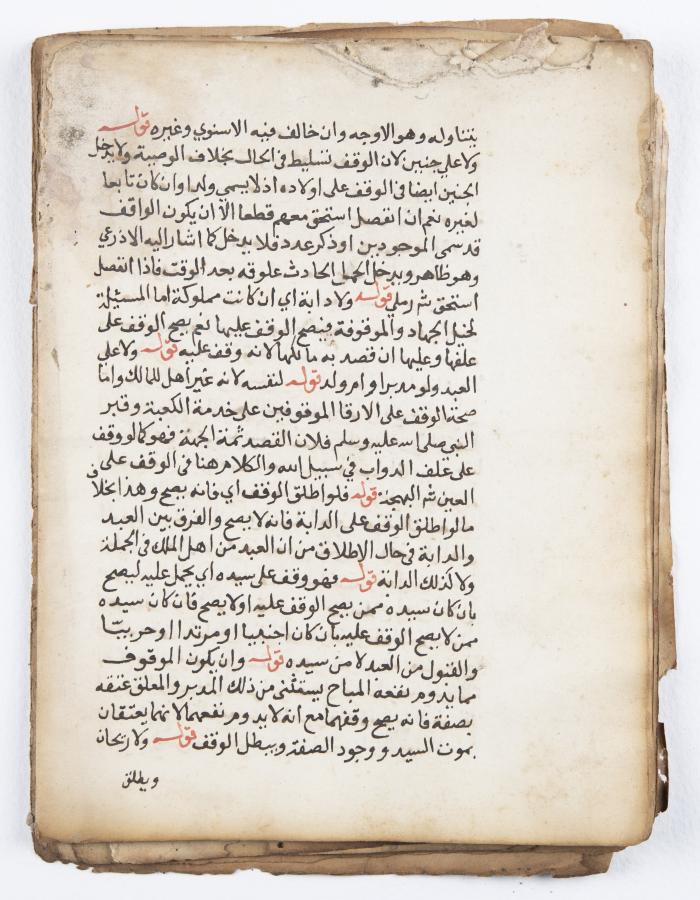 يتناوله وهو الاوجه وان خالف فيه الاسنوي وغيره قوله
ولا علي جنين لان الوقف تسليط في الحال بخلاف الوصية ولا يدخل
الجنين ايضا في الوقف على اولاده اذ لا يسمى ولدا وان كان تابعا
لغيره نعم ان انفصل استحق معهم قطعا الا ان يكون الواقف
قد سمى الموجودين او ذكر عددهم فلا يدخل كما اشار اليه الاذرعي
وهو ظاهر ويدخل الحمل الحادث علوقه بعد الوقف فاذا انفصل
استحق شم رملي قوله ولا دابة اي ان كانت مملوكة اما المسبلة
لخيل الجهاد والموقوفة فيصح الوقف عليها نعم يصح الوقف على
علفها وعليها ان قصد به مالكها لانه وقف عليه قوله ولا علي
العبد ولو مدبرا وام ولد قوله لنفسه لانه غير اهل للملك واما
صحة الوقف على الارقا الموقوفين على خدمة الكعبة وقبر
النبي صلى الله عليه وسلم فلان القصد ثمة الجهة فهو كالوقف
على علف الدواب في سبيل الله والكلام هنا في الوقف على
العين شم البهجة قوله فلو اطلق الوقف اي فانه يصح وهذا بخلاف
ما لو اطلق الوقف على الدابة فانه لا يصح والفرق بين العبد
والدابة في حال الاطلاق من ان العبد من اهل الملك في الجملة
ولا كذلك الدابة قوله فهو وقف على سيده اي يحمل عليه ليصح
بان كان سيده ممن يصح الوقف عليه او لا يصح فان كان سيده
ممن لا يصح الوقف عليه بان كان اجنبيا او مرتدا او حربيا
والقبول من العبد لا من سيده قوله وان يكون الموقوف
مما يدوم نفعه المباح يستثنى من ذلك المدبر والمعلق عتقه
بصفة فانه يصح وقفهما مع انه لا يدوم نفعهما لانهما يعتقان
بموت السيد ووجود الصفة ويبطل الوقف قوله ولا ريحان
ويطلق